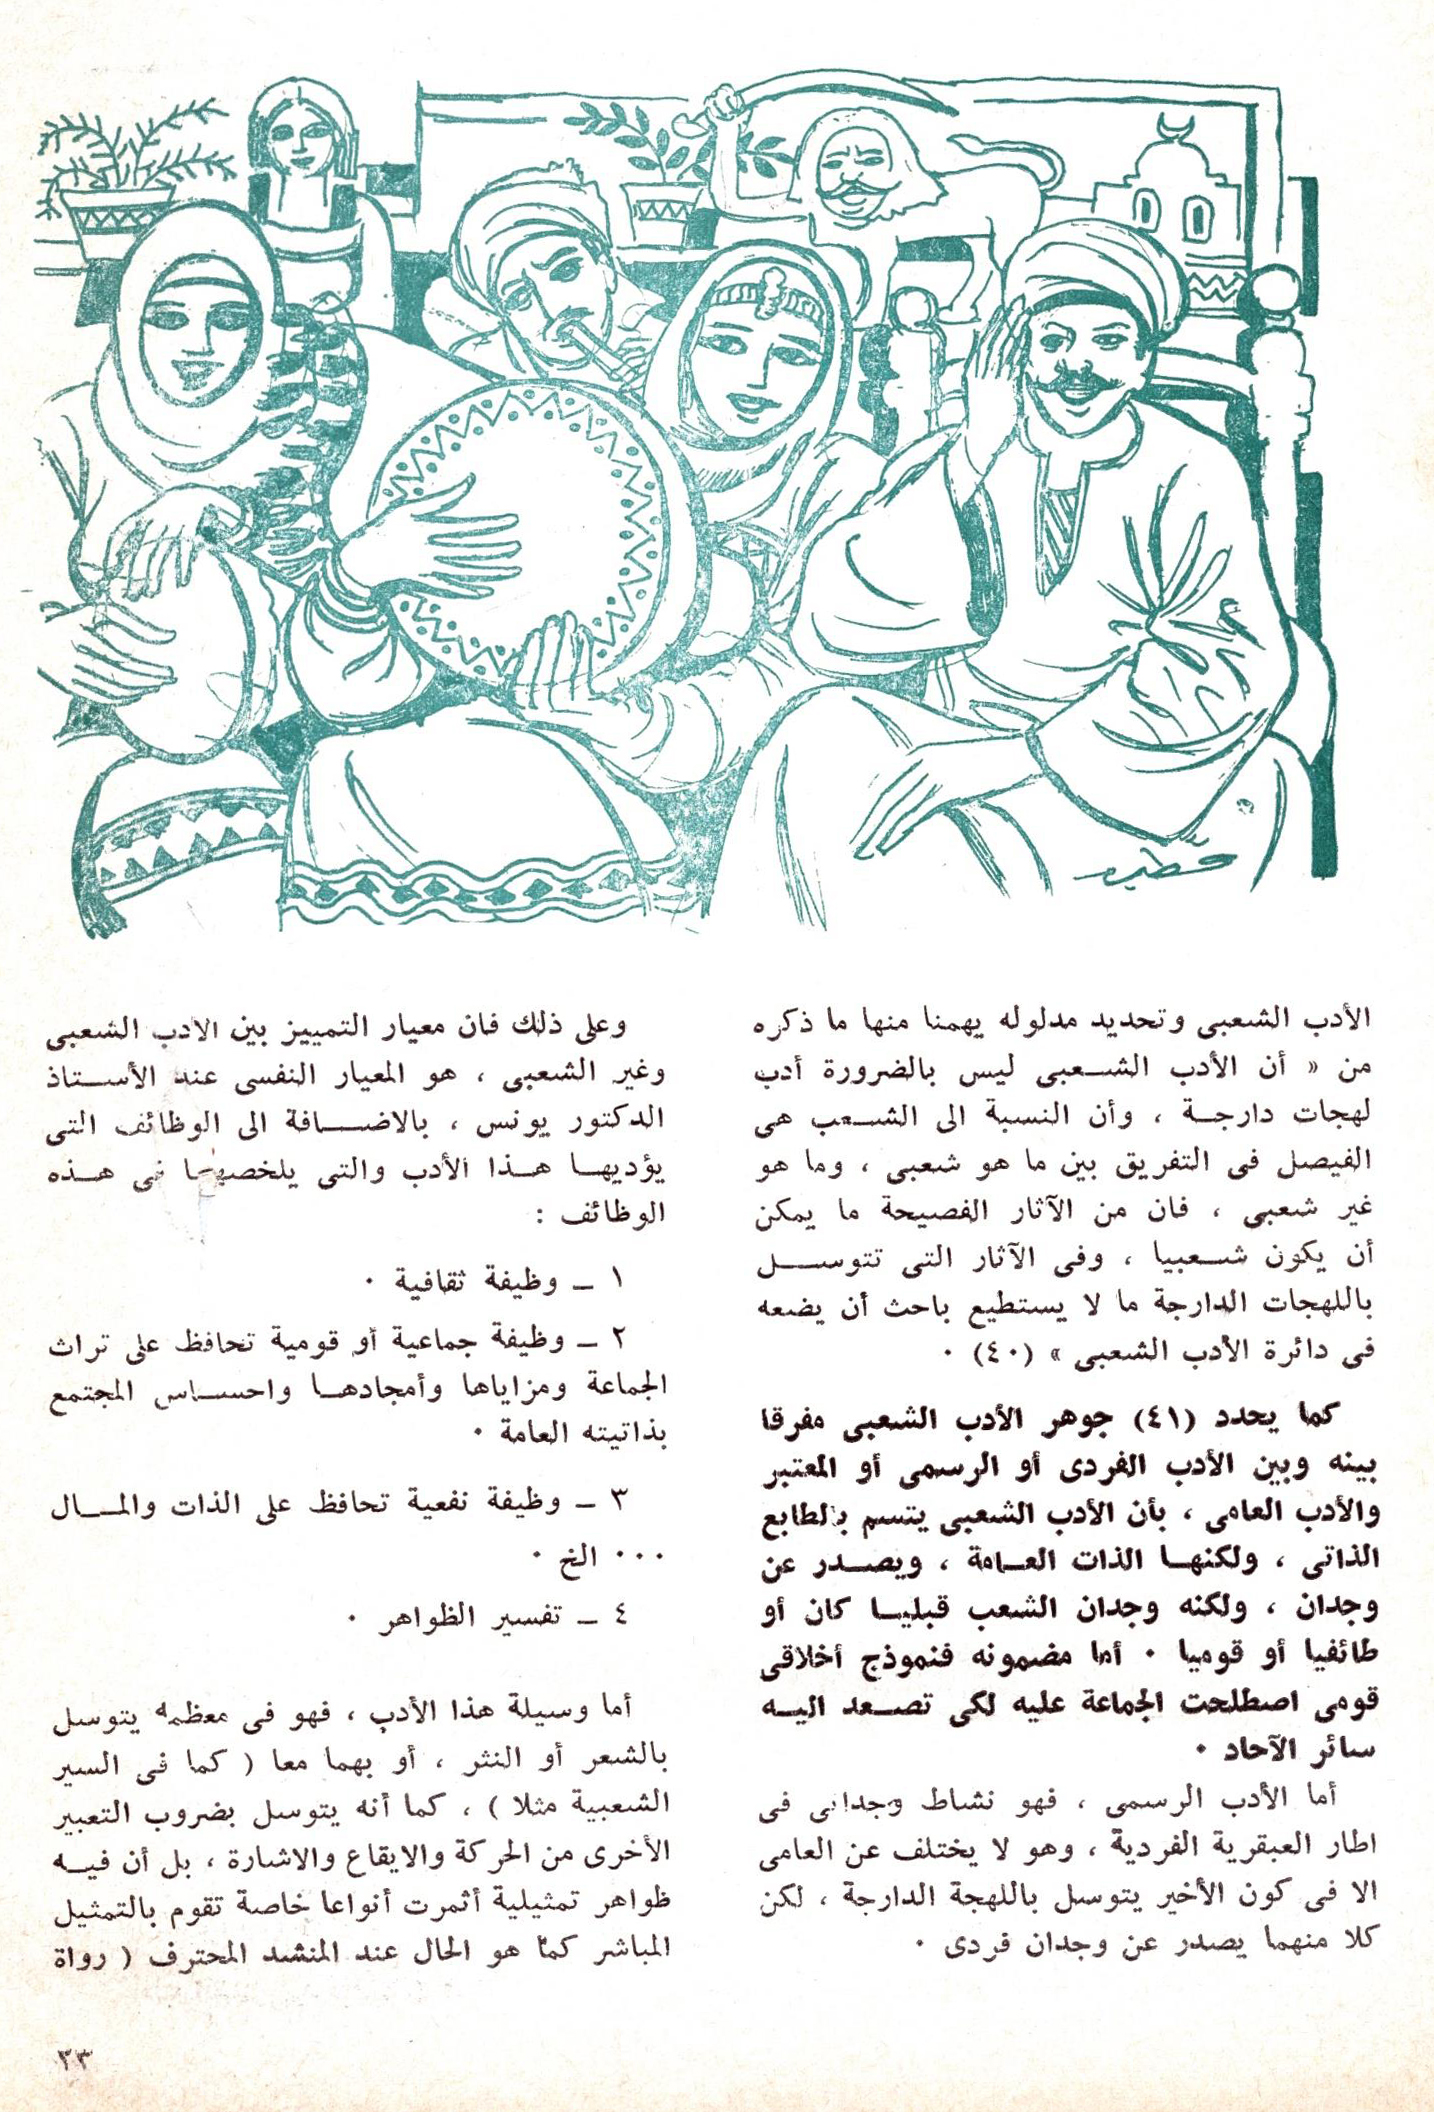 قطب
الأدب الشعبى وتحديد مدلوله يهمنا منها ما ذكره
من « أن الأدب الشعبى ليس بالضرورة أدب
لهجات دارجة ، وأن النسبة الى الشعب هى
الفيصل فى التفريق بين ما هو شعبى ، وما هو
غير شعبى ، فان من الآثار الفصيحة ما يمكن
أن يكون شعبيا ، وفى الآثار التى تتوسل
باللهجات الدارجة ما لا يستطيع باحث أن يضعه
فى دائرة الأدب الشعبى » (٤٠) ٠
كما يحدد (٤١) جوهر الأدب الشعبى مفرقا
بينه وبين الأدب الفردى أو الرسمى أو المعتبر
والأدب العامى ، بأن الأدب الشعبى يتسم بالطابع
الذاتى ، ولكنها الذات العامة ، ويصدر عن
وجدان ، ولكنه وجدان الشعب قبليا كان أو
طائفيا أو قوميا ٠ أما مضمونه فنموذج أخلاقى
قومى اصطلحت الجماعة عليه لكى تصعد اليه
سائر الآحاد ٠
أما الأدب الرسمى ، فهو نشاط وجدانى فى
اطار العبقرية الفردية ، وهو لا يختلف عن العامى
الا فى كون الأخير يتوسل باللهجة الدارجة ، لكن
كلا منهما يصدر عن وجدان فردى ٠
وعلى ذلك فان معيار التمييز بين الادب الشعبى
وغير الشعبى ، هو المعيار النفسى عند الأستاذ
الدكتور يونس ، بالاضافة الى الوظائف التى
يؤديها هذا الأدب والتى يلخصها فى هذه
الوظائف :
١ ــ وظيفة ثقافية ٠
٢ ــ وظيفة جماعية أو قومية تحافظ على تراث
الجماعة ومزاياها وأمجادها واحساس المجتمع
بذاتيته العامة ٠
٣ ــ وظيفة نفعية تحافظ على الذات والمال
٠٠٠ الخ ٠
٤ ــ تفسير الظواهر ٠
أما وسيلة هذا الأدب ، فهو فى معظمه يتوسل
بالشعر أو النثر ، أو بهما معا ( كما فى السير
الشعبية مثلا ) ، كما أنه يتوسل بضروب التعبير
الأخرى من الحركة والايقاع والاشارة ، بل أن فيه
ظواهر تمثيلية أثمرت أنواعا خاصة تقوم بالتمثيل
المباشر كما هو الحال عند المنشد المحترف ( رواة
٢٣